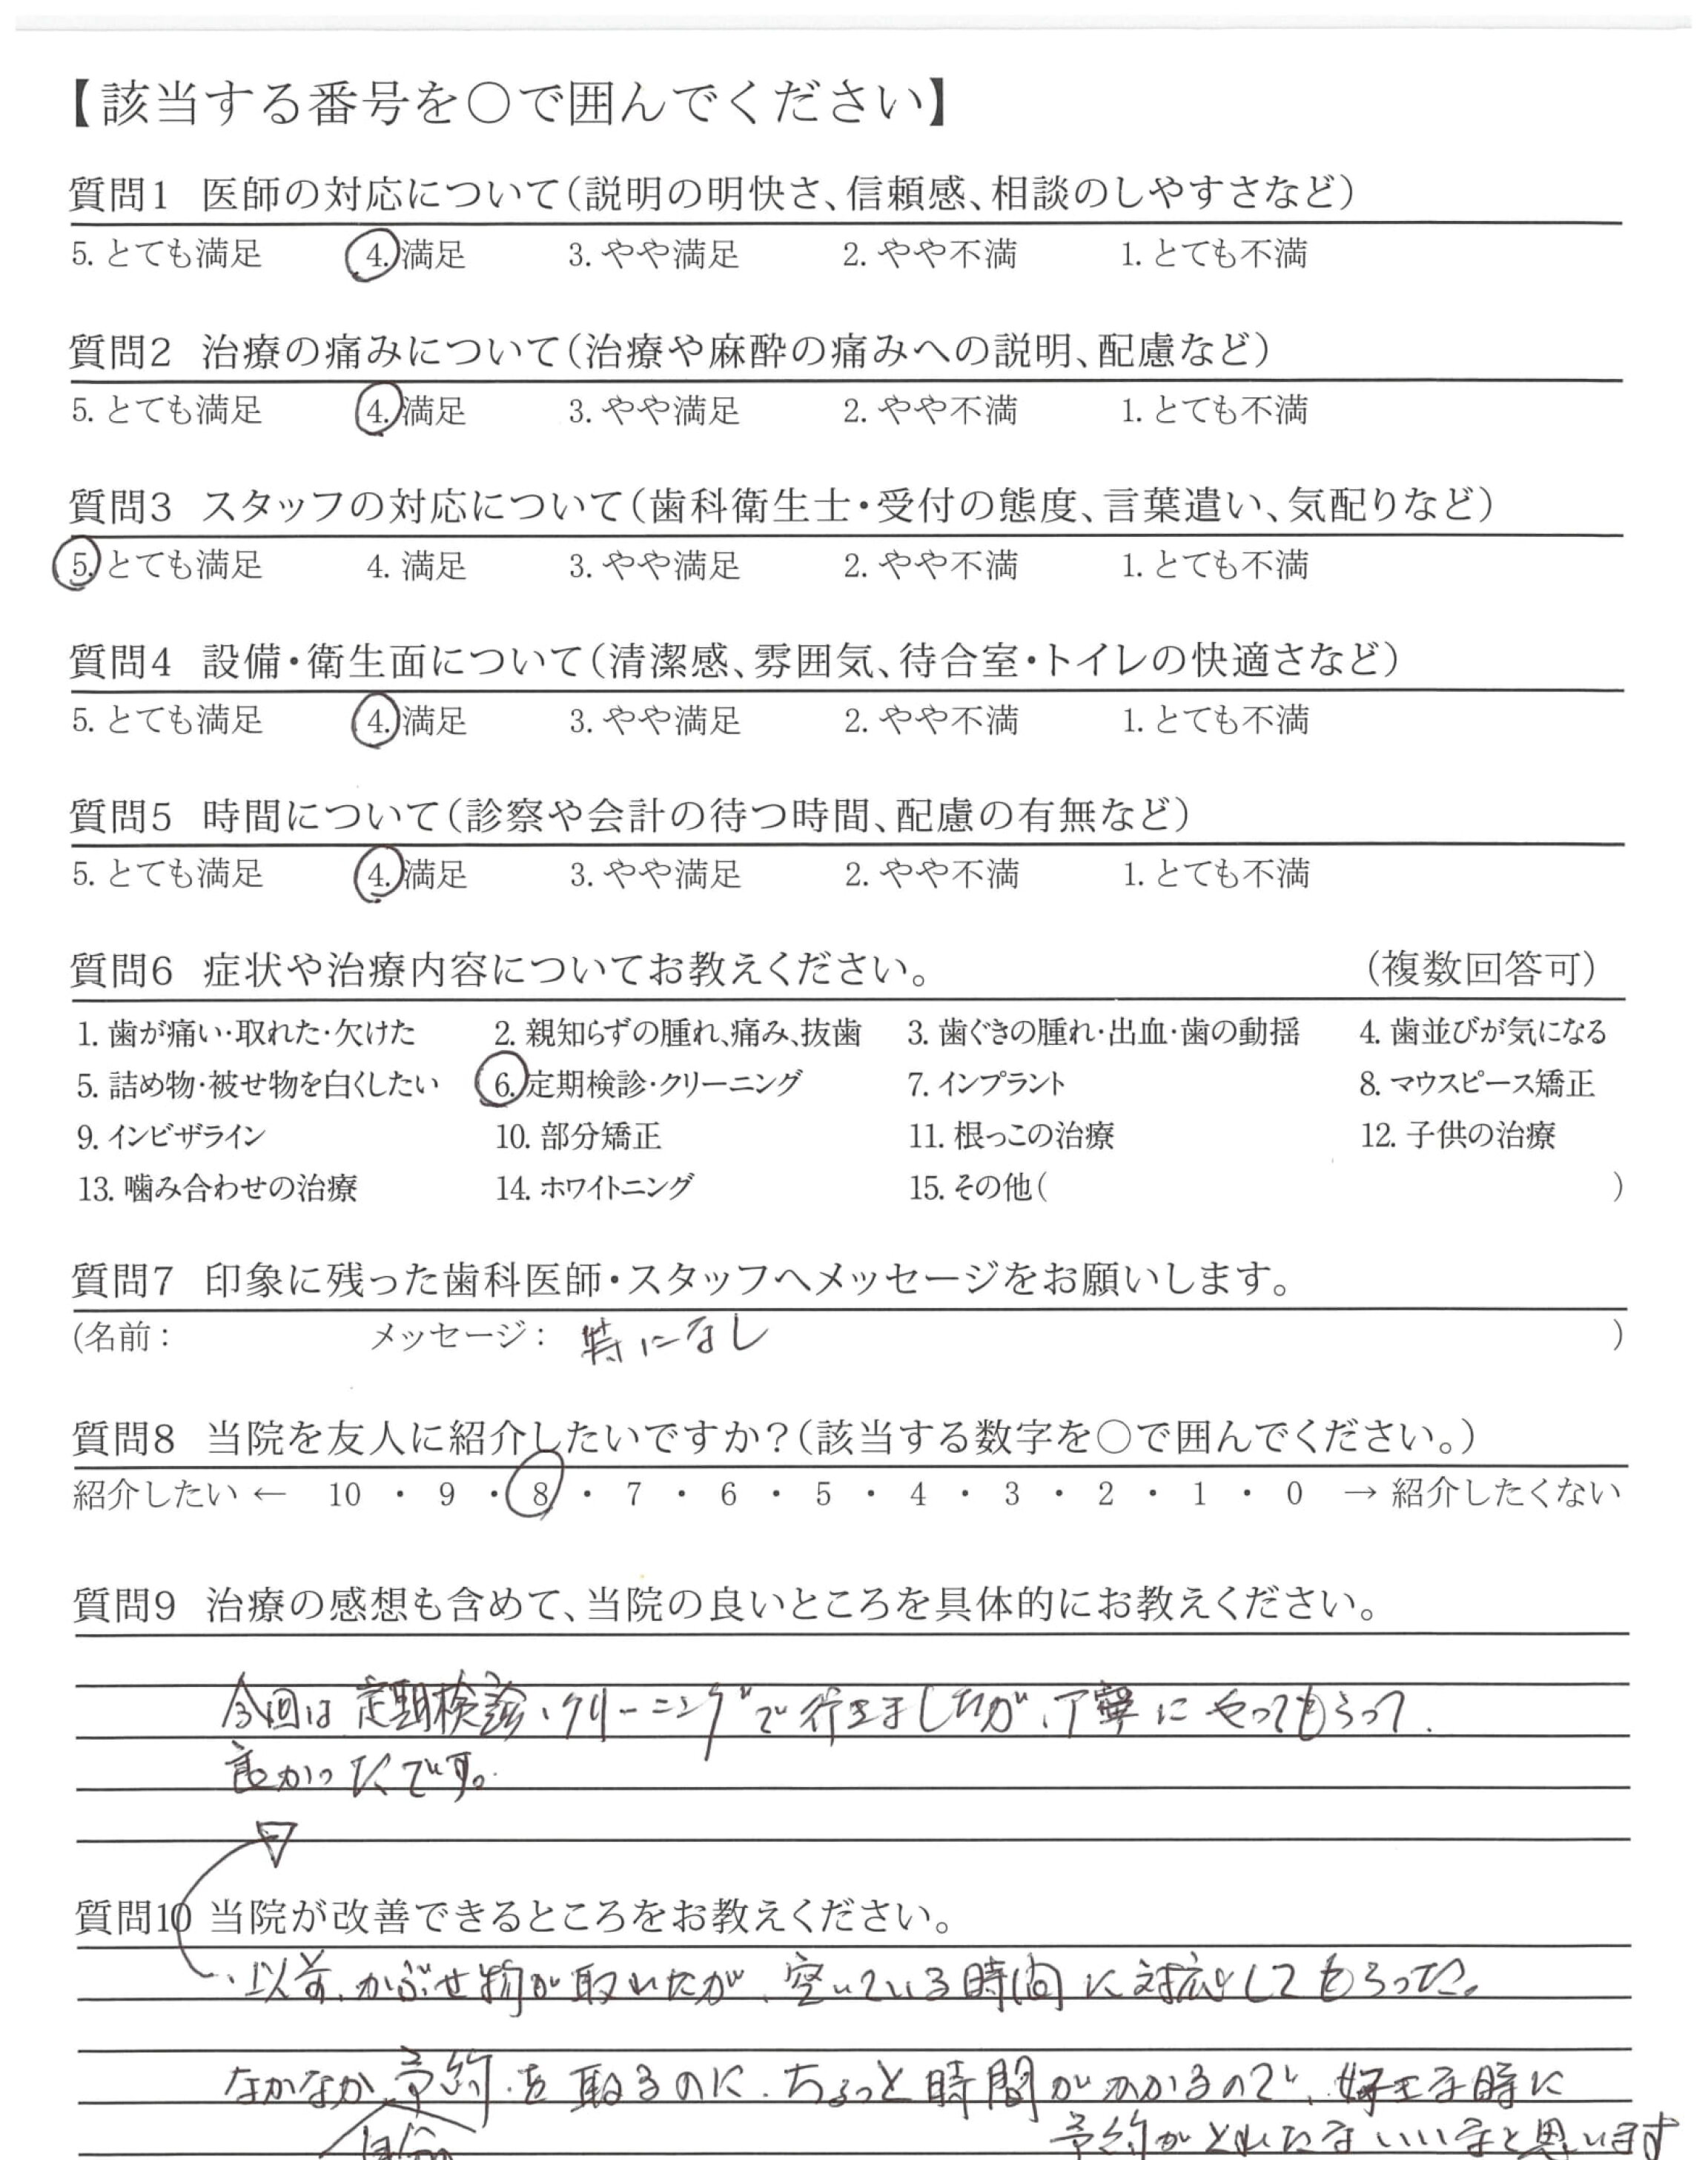 【該当する番号を○で囲んでください】
質問1 医師の対応について（説明の明快さ、信頼感、相談のしやすさなど）
5. とても満足 4. 満足 3. やや満足 2. やや不満 1. とても不満
質問2 治療の痛みについて（治療や麻酔の痛みへの説明、配慮など）
5. とても満足 4. 満足 3. やや満足 2. やや不満 1. とても不満
質問3 スタッフの対応について（歯科衛生士・受付の態度、言葉遣い、気配りなど）
5. とても満足 4. 満足 3. やや満足 2. やや不満 1. とても不満
質問4 設備・衛生面について（清潔感、雰囲気、待合室・トイレの快適さなど）
5. とても満足 4. 満足 3. やや満足 2. やや不満 1. とても不満
質問5 時間について（診察や会計の待つ時間、配慮の有無など）
5. とても満足 4. 満足 3. やや満足 2. やや不満 1. とても不満
質問6 症状や治療内容についてお教えください。 （複数回答可）
1. 歯が痛い・取れた・欠けた 2. 親知らずの腫れ、痛み、抜歯 3. 歯ぐきの腫れ・出血・歯の動揺 4. 歯並びが気になる
5. 詰め物・被せ物を白くしたい 6. 定期検診・クリーニング 7. インプラント 8. マウスピース矯正
9. インビザライン 10. 部分矯正 11. 根っこの治療 12. 子供の治療
13. 噛み合わせの治療 14. ホワイトニング 15. その他（ ）
質問7 印象に残った歯科医師・スタッフへメッセージをお願いします。
（名前： メッセージ： 特になし ）
質問8 当院を友人に紹介したいですか？（該当する数字を○で囲んでください。）
紹介したい ← 10 ・ 9 ・ 8 ・ 7 ・ 6 ・ 5 ・ 4 ・ 3 ・ 2 ・ 1 ・ 0 → 紹介したくない
質問9 治療の感想も含めて、当院の良いところを具体的にお教えください。
今回は定期検診、クリーニングで行きましたが、丁寧にやってもらって、
良かったです。
質問10 当院が改善できるところをお教えください。
・以前、かぶせ物が取れたが、空いている時間に対応してもらった。
なかなか予約を取るのに、ちょっと時間がかかるので、好きな時に
予約がとれたらいいなと思います